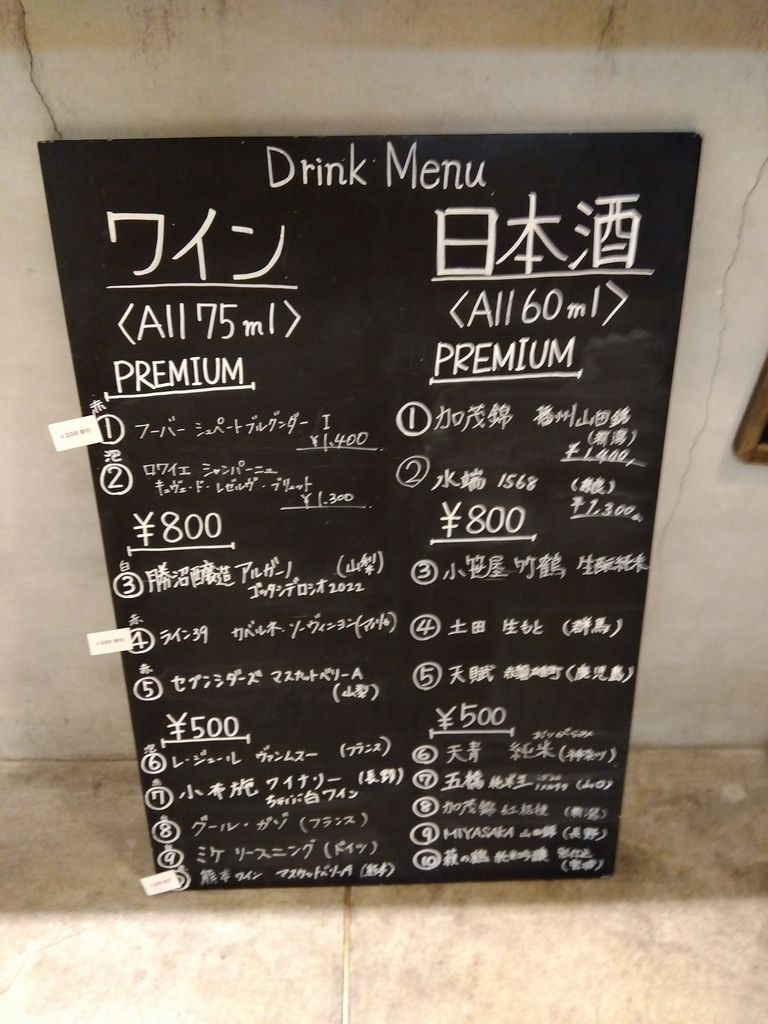 Drink Menu
ワイン
〈All 75ml〉
PREMIUM
赤
① フーバー シュペートブルグンダー I
¥1,400
泡
② ロワイエ シャンパーニュ
キュヴェ・ド・レゼルヴ・ブリュット
¥1,300
¥800
白
③ 勝沼醸造 アルガーノ (山梨)
ゴッタシデロシオ2022
赤
④ ライン39 カベルネ・ソーヴィニヨン
赤
⑤ セブンシダーズ マスカットベリーA
(山梨)
¥500
泡
⑥ レ・ジュール ヴァンムスー (フランス)
⑦ 小布施ワイナリー (長野)
白ワイン
⑧ グール・ガゾ (フランス)
⑨ ミケ リースニング (ドイツ)
熊本ワイン マスカットベリーA (熊本)
日本酒
〈All 60ml〉
PREMIUM
① 加茂錦 播州山田錦
(新潟)
¥1,400
② 水端 1568 (奈良)
¥1,300
¥800
③ 小笹屋 竹鶴 生酛純米
④ 土田 生もと (群馬)
⑤ 天賦 (鹿児島)
¥500
⑥ 天青 純米 (神奈川)
⑦ 五橋 (山口)
⑧ 加茂錦 紅桔梗 (新潟)
⑨ MIYASAKA 山田錦 (長野)
⑩ 萩の鶴 純米吟醸
(宮城)